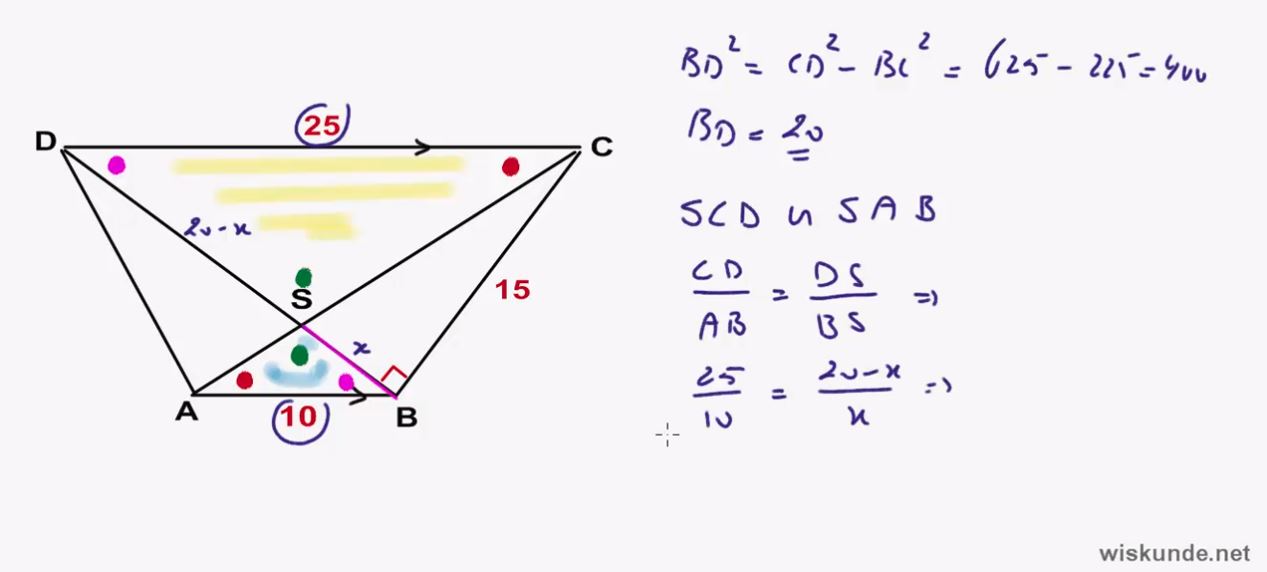 25
D
C
20-x
S
15
x
A
10
B
BD² = CD² - BC² = 625 - 225 = 400
BD = 20
SCD ∽ SAB
CD/AB = DS/BS ⇒
25/10 = 20-x/x ⇒
wiskunde.net